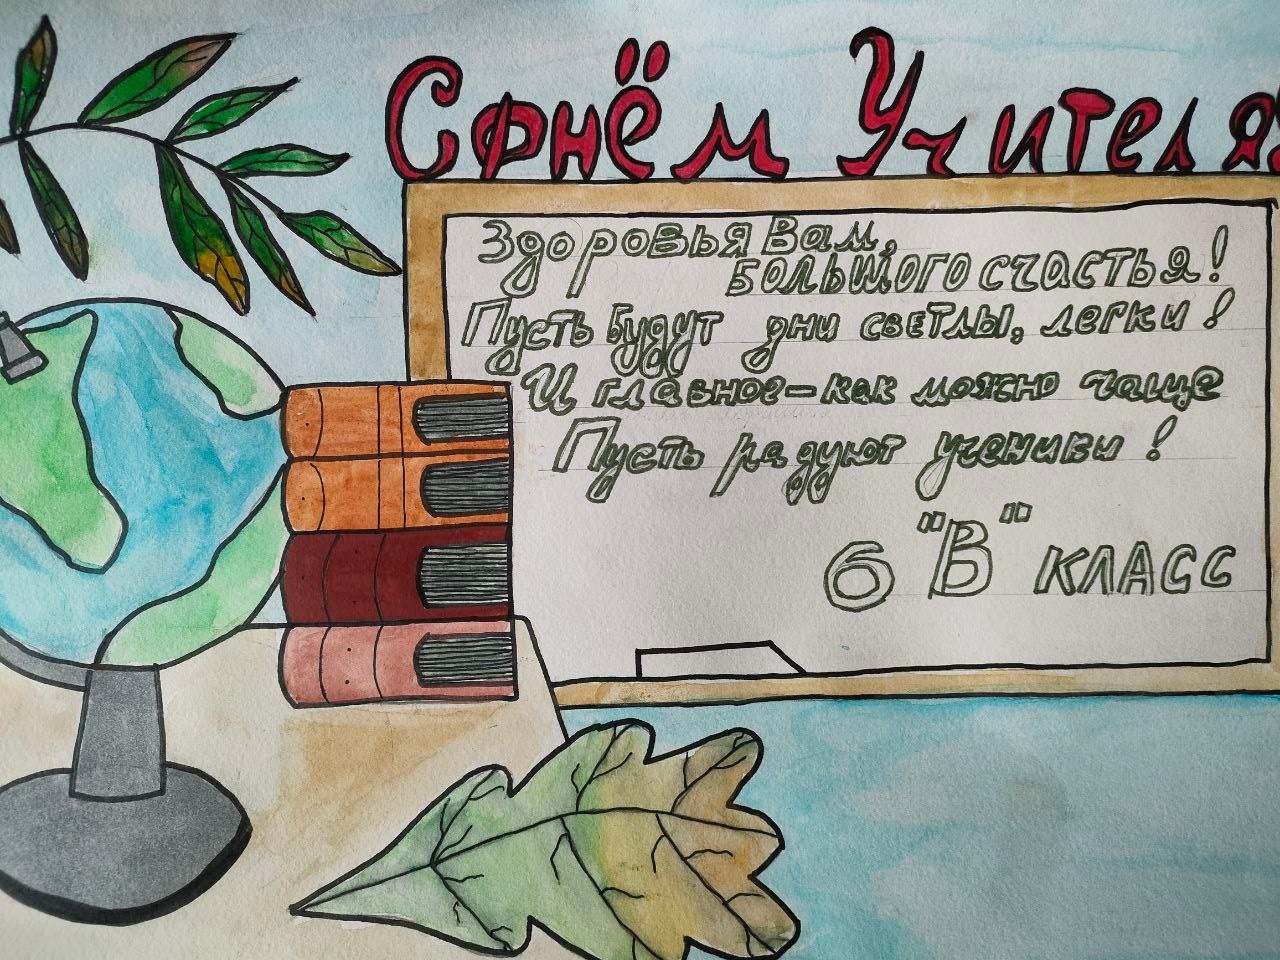 С днём Учителя
Здоровья Вам,
большого счастья!
Пусть будут дни светлы, легки!
И главное - как можно чаще
Пусть радуют ученики!
6 "В" класс